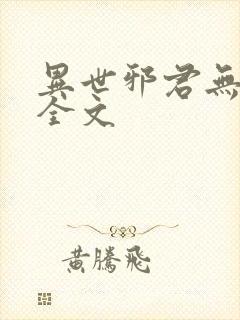 異世邪君無
全文
黃騰飛